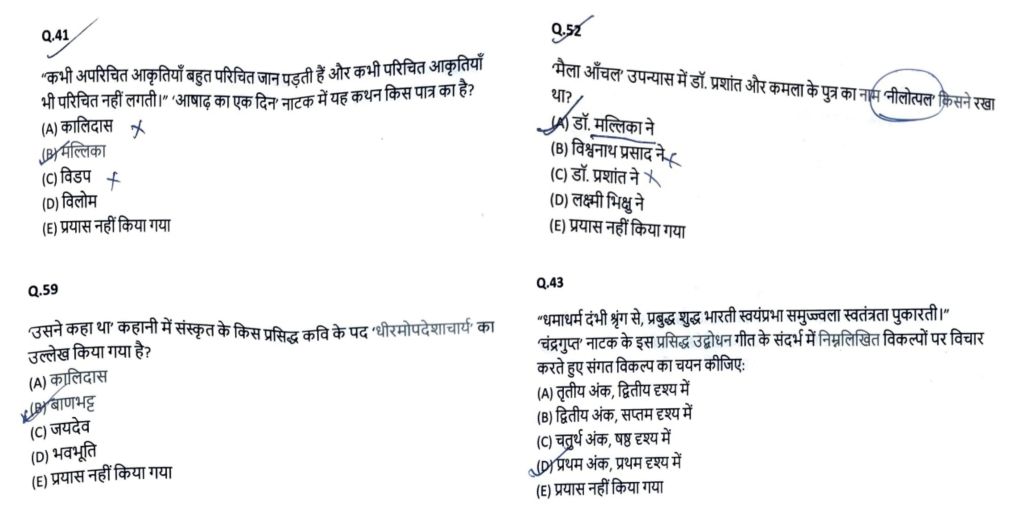 Q.41
"कभी अपरिचित आकृतियाँ बहुत परिचित जान पड़ती हैं और कभी परिचित आकृतियाँ
भी परिचित नहीं लगती।" 'आषाढ़ का एक दिन' नाटक में यह कथन किस पात्र का है?
(A) कालिदास
(B) मल्लिका
(C) विडप
(D) विलोम
(E) प्रयास नहीं किया गया
Q.52
'मैला आँचल' उपन्यास में डॉ. प्रशांत और कमला के पुत्र का नाम 'नीलोत्पल' किसने रखा
था?
(A) डॉ. मल्लिका ने
(B) विश्वनाथ प्रसाद ने
(C) डॉ. प्रशांत ने
(D) लक्ष्मी भिक्षु ने
(E) प्रयास नहीं किया गया
Q.59
'उसने कहा था' कहानी में संस्कृत के किस प्रसिद्ध कवि के पद 'धीरमोपदेशाचार्य' का
उल्लेख किया गया है?
(A) कालिदास
(B) बाणभट्ट
(C) जयदेव
(D) भवभूति
(E) प्रयास नहीं किया गया
Q.43
"धमाधर्म दंभी श्रृंग से, प्रबुद्ध शुद्ध भारती स्वयंप्रभा समुज्ज्वला स्वतंत्रता पुकारती।"
'चंद्रगुप्त' नाटक के इस प्रसिद्ध उद्बोधन गीत के संदर्भ में निम्नलिखित विकल्पों पर विचार
करते हुए संगत विकल्प का चयन कीजिए:
(A) तृतीय अंक, द्वितीय दृश्य में
(B) द्वितीय अंक, सप्तम दृश्य में
(C) चतुर्थ अंक, षष्ठ दृश्य में
(D) प्रथम अंक, प्रथम दृश्य में
(E) प्रयास नहीं किया गया